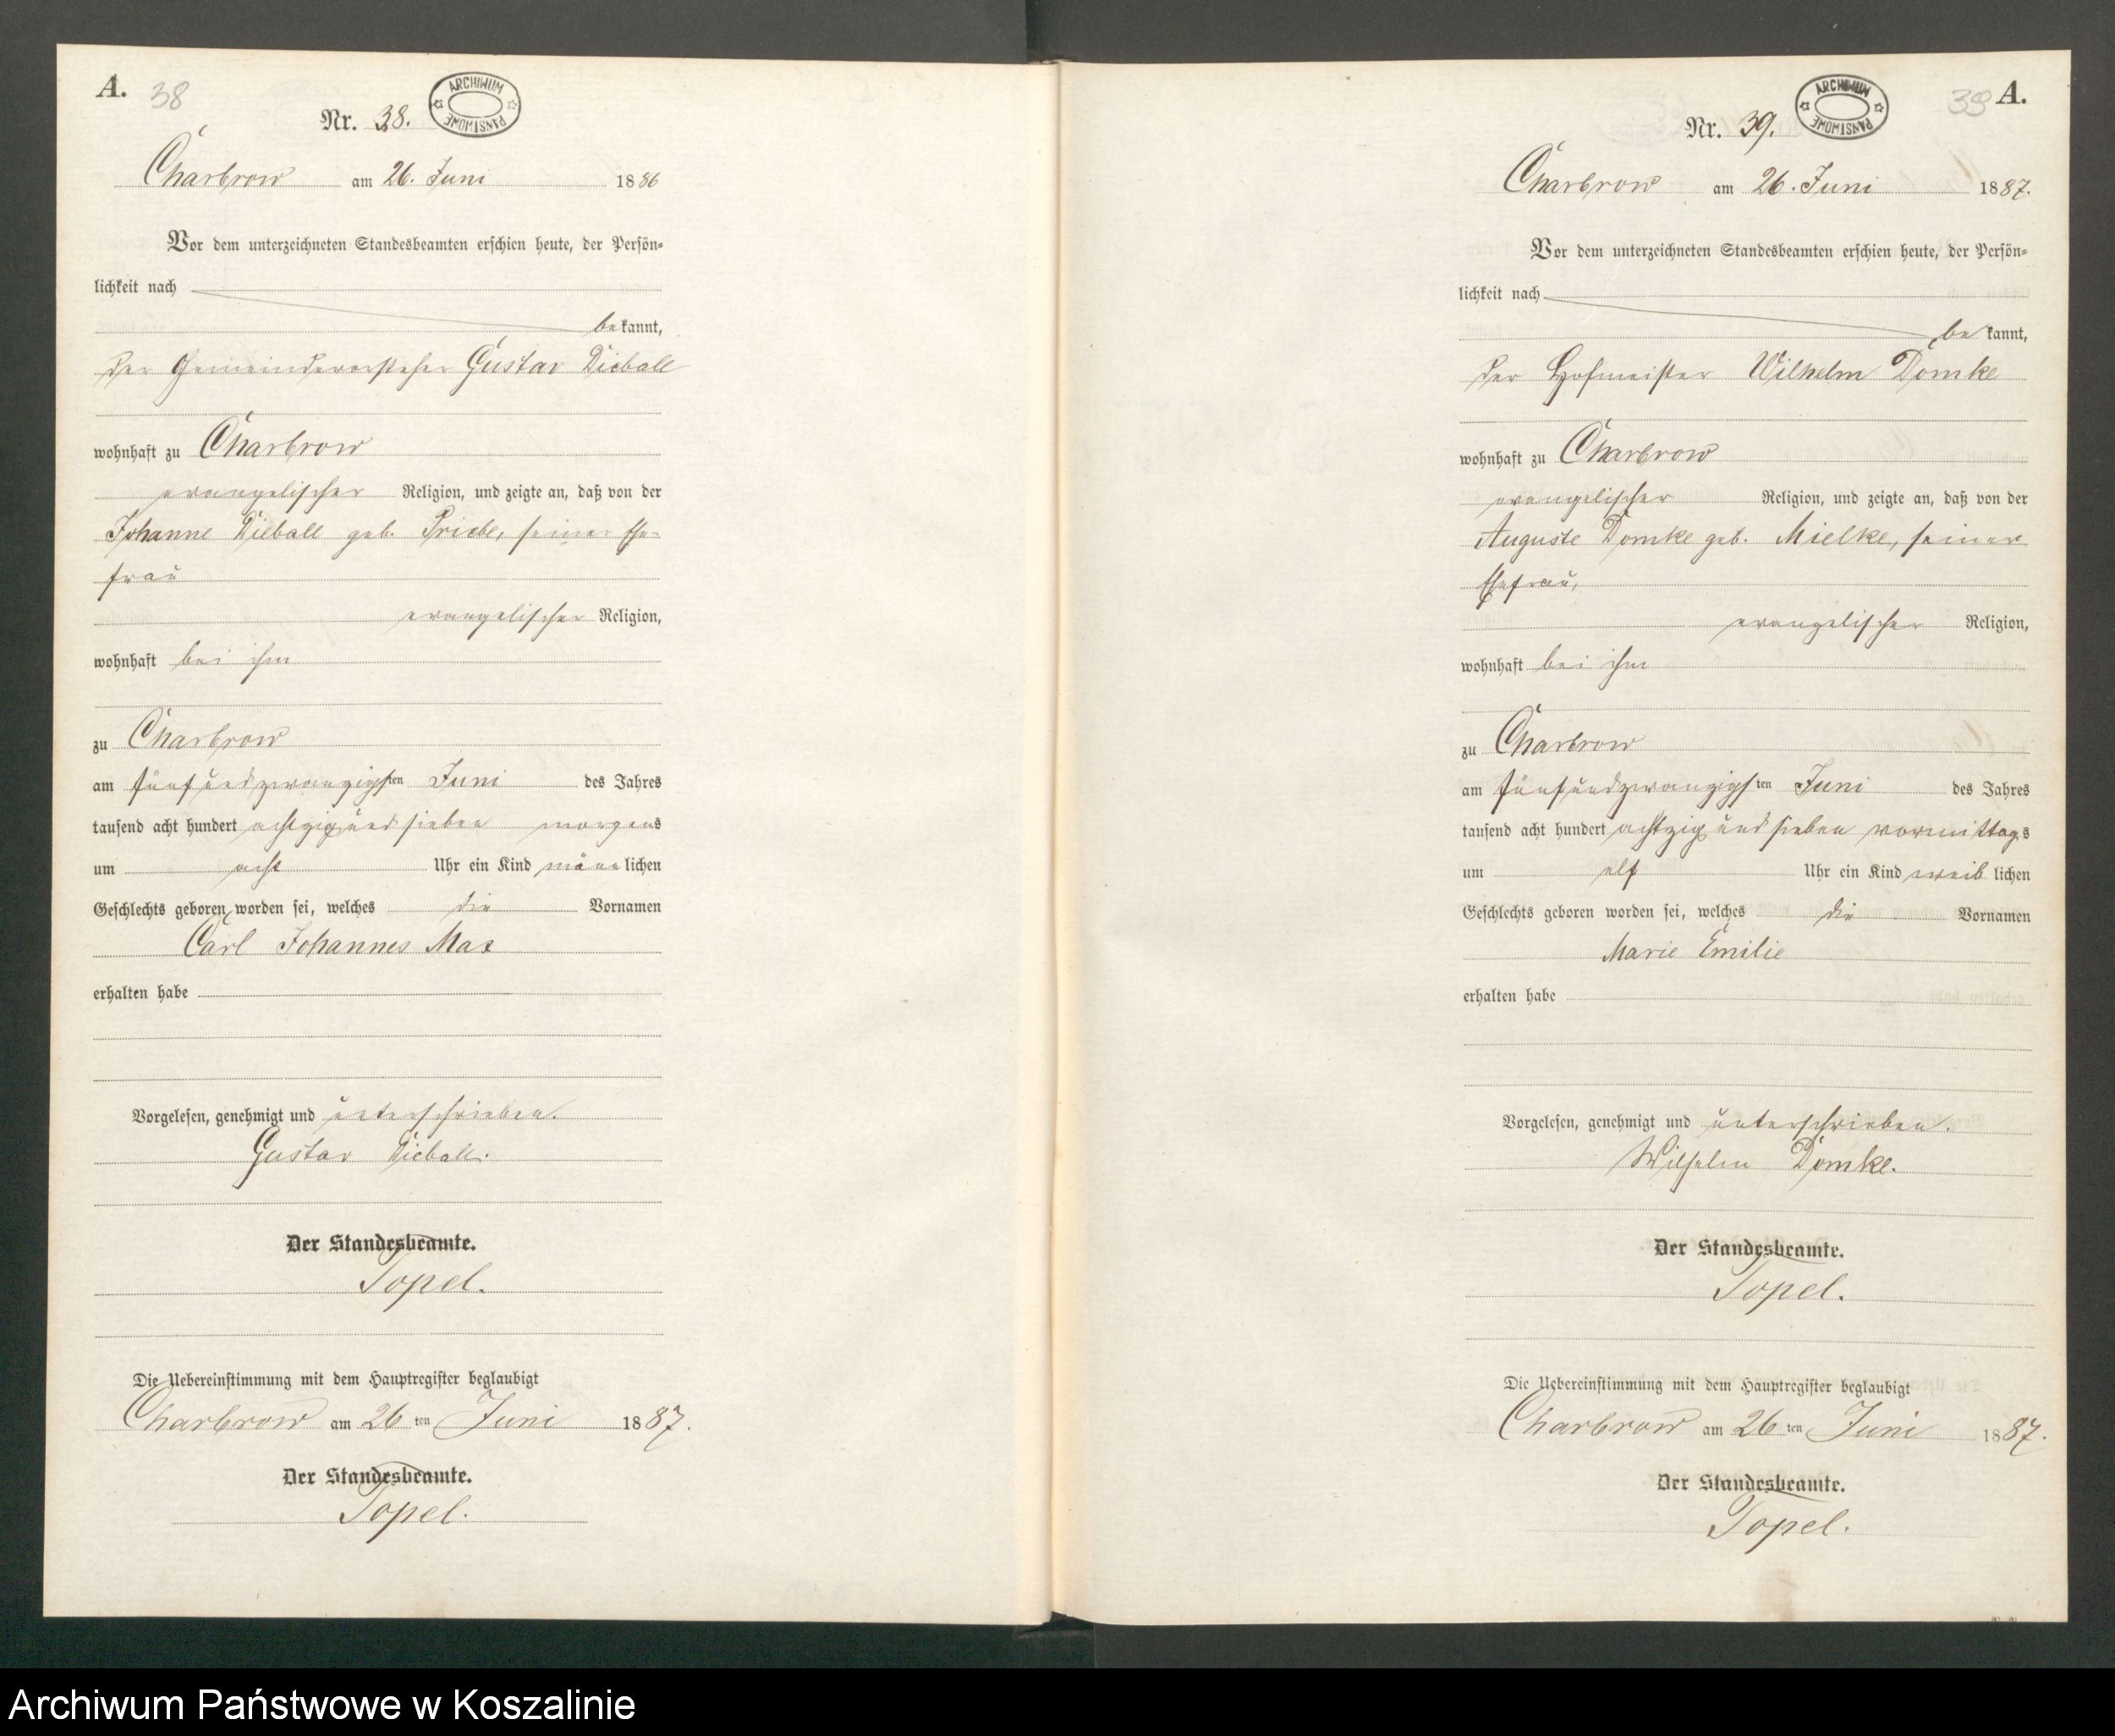 A. 38
ARCHIWUM PAŃSTWOWE
Nr. 38.
Charbrow am 26. Juni 1886
Vor dem unterzeichneten Standesbeamten erschien heute, der Persön-
lichkeit nach
bekannt,
der Gemeindevorsteher Gustav Dieball
wohnhaft zu Charbrow
evangelischer Religion, und zeigte an, daß von der
Johanne Dieball geb. Priebe, seiner Ehe-
frau
evangelischer Religion,
wohnhaft bei ihm
zu Charbrow
am fünfundzwanzigsten Juni des Jahres
tausend acht hundert achtzig und sieben morgens
um acht Uhr ein Kind männlichen
Geschlechts geboren worden sei, welches die Vornamen
Carl Johannes Max
erhalten habe
Vorgelesen, genehmigt und unterschrieben.
Gustav Dieball.
Der Standesbeamte.
Topel.
Die Uebereinstimmung mit dem Hauptregister beglaubigt
Charbrow am 26ten Juni 1887.
Der Standesbeamte.
Topel.
39 A.
ARCHIWUM PAŃSTWOWE
Nr. 39.
Charbrow am 26. Juni 1887.
Vor dem unterzeichneten Standesbeamten erschien heute, der Persön-
lichkeit nach
bekannt,
der Hofmeister Wilhelm Domke
wohnhaft zu Charbrow
evangelischer Religion, und zeigte an, daß von der
Auguste Domke geb. Mielke, seiner
Ehefrau,
evangelischer Religion,
wohnhaft bei ihm
zu Charbrow
am fünfundzwanzigsten Juni des Jahres
tausend acht hundert achtzig und sieben vormittags
um elf Uhr ein Kind weiblichen
Geschlechts geboren worden sei, welches die Vornamen
Marie Emilie
erhalten habe
Vorgelesen, genehmigt und unterschrieben.
Wilhelm Domke.
Der Standesbeamte.
Topel.
Die Uebereinstimmung mit dem Hauptregister beglaubigt
Charbrow am 26ten Juni 1887.
Der Standesbeamte.
Topel.
Archiwum Państwowe w Koszalinie